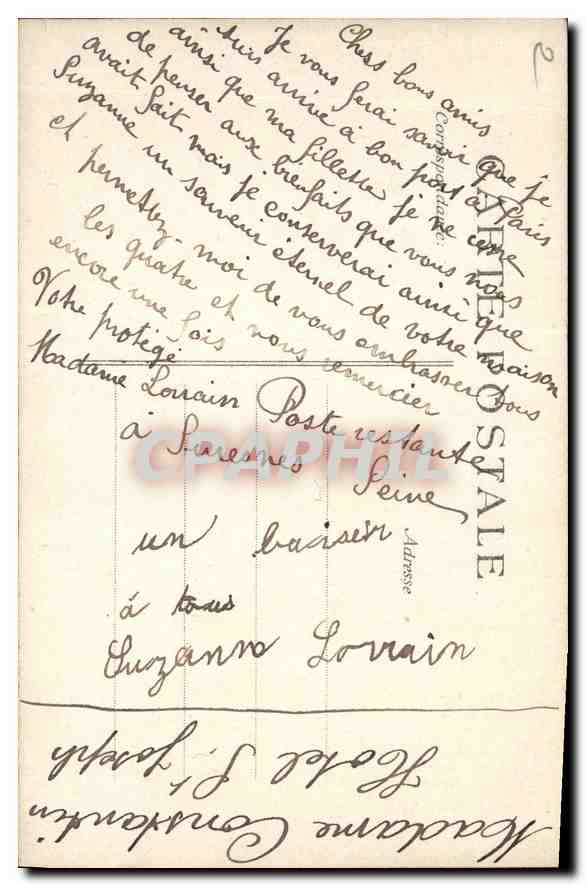 Chers bons amis
Je vous ferai savoir que je
suis arrivé a bon port à Paris
ainsi que ma fillette je ne cesse
de penser aux bienfaits que vous nous
avait fait mais je conserverai ainsi que
Suzanne un souvenir éternel de votre maison
et permettez-moi de vous embrasser tous
les quatre et vous remercier
encore une fois
Votre protégé
Madame Lorrain Poste restante
à Suresnes Seine
un baiser
à tous
Suzanne Lorrain
Madame Constantin
Hotel St Joseph
CARTE POSTALE
Correspondance
Adresse
2
CPAPHIL